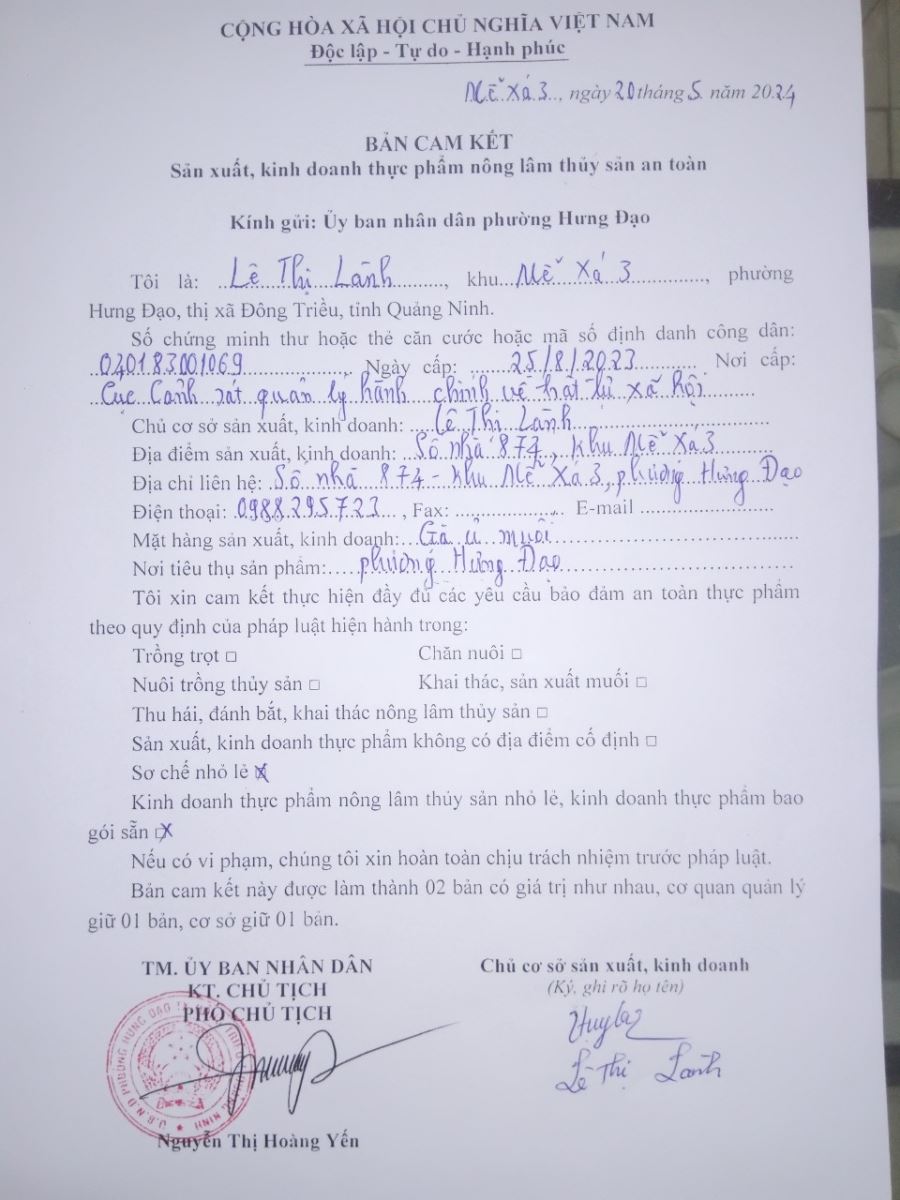 CỘNG HÒA XÃ HỘI CHỦ NGHĨA VIỆT NAM
Độc lập - Tự do - Hạnh phúc
Mễ Xá 3.., ngày 20 tháng 5. năm 2024
BẢN CAM KẾT
Sản xuất, kinh doanh thực phẩm nông lâm thủy sản an toàn
Kính gửi: Ủy ban nhân dân phường Hưng Đạo
Tôi là: ..Lê Thị Lành........, khu...Mễ Xá 3............, phường
Hưng Đạo, thị xã Đông Triều, tỉnh Quảng Ninh.
Số chứng minh thư hoặc thẻ căn cước hoặc mã số định danh công dân:
..030183001069................., Ngày cấp: .......25/8/2023.......... Nơi cấp:
Cục Cảnh sát quản lý hành chính về trật tự xã hội..........
Chủ cơ sở sản xuất, kinh doanh: ....Lê Thị Lành..............................
Địa điểm sản xuất, kinh doanh: Số nhà 874, khu Mễ Xá 3
Địa chỉ liên hệ: Số nhà 874 - khu Mễ Xá 3, phường Hưng Đạo
Điện thoại: 0988.295.723...., Fax: ..................... E-mail ..........................
Mặt hàng sản xuất, kinh doanh:...Gà ủ muối..............................
Nơi tiêu thụ sản phẩm:.....phường Hưng Đạo..............................
Tôi xin cam kết thực hiện đầy đủ các yêu cầu bảo đảm an toàn thực phẩm
theo quy định của pháp luật hiện hành trong:
Trồng trọt □ Chăn nuôi □
Nuôi trồng thủy sản □ Khai thác, sản xuất muối □
Thu hái, đánh bắt, khai thác nông lâm thủy sản □
Sản xuất, kinh doanh thực phẩm không có địa điểm cố định □
Sơ chế nhỏ lẻ ☒
Kinh doanh thực phẩm nông lâm thủy sản nhỏ lẻ, kinh doanh thực phẩm bao
gói sẵn ☒
Nếu có vi phạm, chúng tôi xin hoàn toàn chịu trách nhiệm trước pháp luật.
Bản cam kết này được làm thành 02 bản có giá trị như nhau, cơ quan quản lý
giữ 01 bản, cơ sở giữ 01 bản.
TM. ỦY BAN NHÂN DÂN
KT. CHỦ TỊCH
PHÓ CHỦ TỊCH
Nguyễn Thị Hoàng Yến
Chủ cơ sở sản xuất, kinh doanh
(Ký, ghi rõ họ tên)
Lê Thị Lành